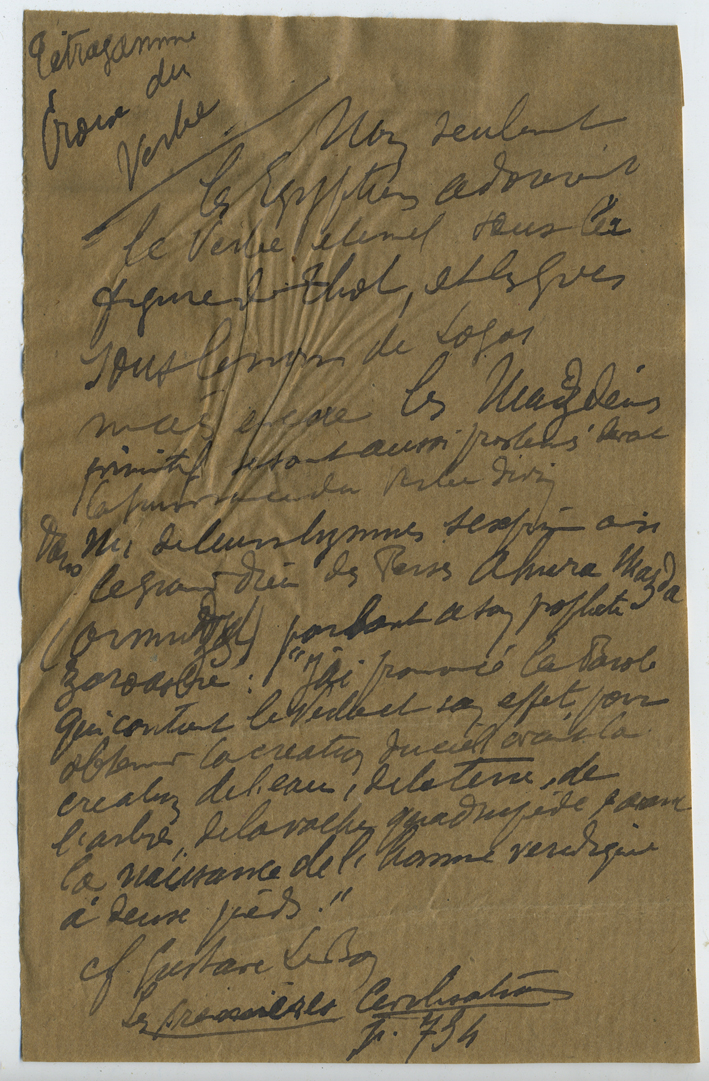 Tétragamme
Croix du
Verbe
Non seulent
les Egyptiens adoraient
le Verbe eternel sous la
figure de Thot, et les grecs
sous le nom de Logos
mais encore les Mazdéens
primitifs
la puissance du Verbe divin
Dans un de leurs hymnes s'exprime ainsi
le grand dieu des Perses Ahura Mazda
(Ormuzd) parlant a son prophete
Zoroastre : "J'ai prononcé la Parole
qui contient le Verbe et son effet pour
obtenir la creation du ciel avant la
creation de l'eau, de la terre, de
l'arbre, de la vache quadrupède, avant
la naissance de l'homme veridique
à deux pieds."
cf Gustave Le Bon
Les premières Civilisations
p. 734